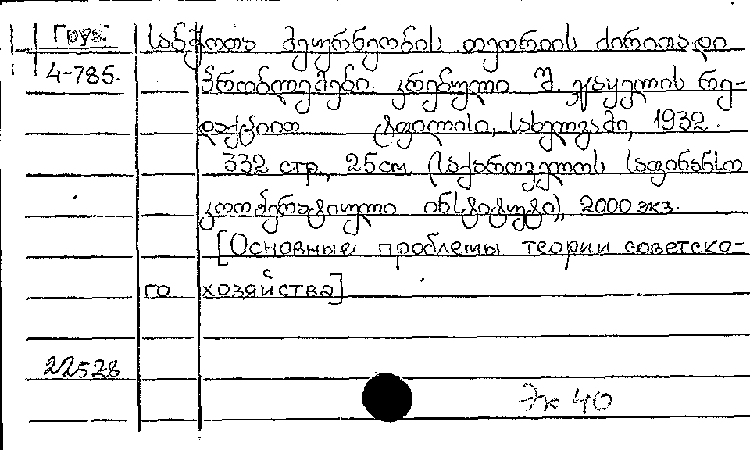 Груз. საბჭოთა მეურნეობის თეორიის ძირითადი
4-785. პრობლემები კრებული შ. რე-
დაქციით ტფილისი, სახელგამი, 1932.
332 стр., 25 см. (საქართველოს საფინანსო
კოოპერატიული ინსტიტუტი), 2000 экз.
[Основные проблемы теории советско-
го хозяйства]
22528
Эк 40